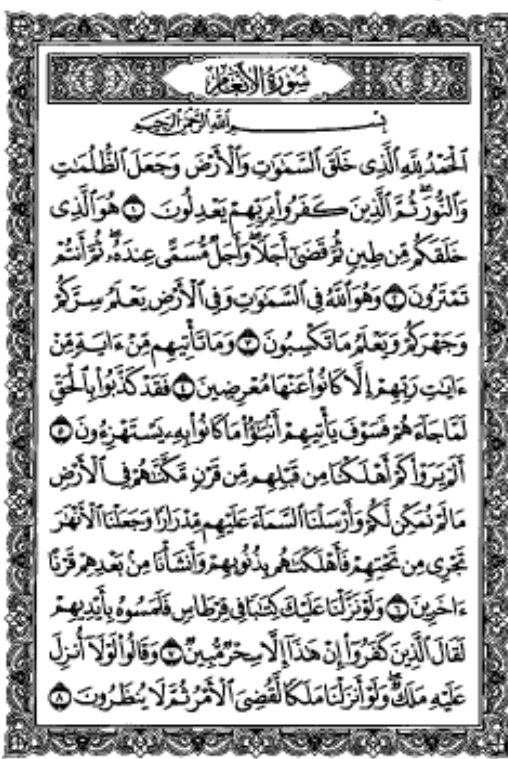 سُورَةُ الأَنْعَامِ
بِسْمِ ٱللَّهِ ٱلرَّحْمَٰنِ ٱلرَّحِيمِ
ٱلْحَمْدُ لِلَّهِ ٱلَّذِى خَلَقَ ٱلسَّمَٰوَٰتِ وَٱلْأَرْضَ وَجَعَلَ ٱلظُّلُمَٰتِ
وَٱلنُّورَ ۖ ثُمَّ ٱلَّذِينَ كَفَرُوا۟ بِرَبِّهِمْ يَعْدِلُونَ ۝١ هُوَ ٱلَّذِى
خَلَقَكُم مِّن طِينٍ ثُمَّ قَضَىٰٓ أَجَلًا ۖ وَأَجَلٌ مُّسَمًّى عِندَهُۥ ۖ ثُمَّ أَنتُمْ
تَمْتَرُونَ ۝٢ وَهُوَ ٱللَّهُ فِى ٱلسَّمَٰوَٰتِ وَفِى ٱلْأَرْضِ يَعْلَمُ سِرَّكُمْ
وَجَهْرَكُمْ وَيَعْلَمُ مَا تَكْسِبُونَ ۝٣ وَمَا تَأْتِيهِم مِّنْ ءَايَةٍ مِّنْ
ءَايَٰتِ رَبِّهِمْ إِلَّا كَانُوا۟ عَنْهَا مُعْرِضِينَ ۝٤ فَقَدْ كَذَّبُوا۟ بِٱلْحَقِّ
لَمَّا جَآءَهُمْ فَسَوْفَ يَأْتِيهِمْ أَنۢبَٰٓؤُا۟ مَا كَانُوا۟ بِهِۦ يَسْتَهْزِءُونَ ۝٥
أَلَمْ يَرَوْا۟ كَمْ أَهْلَكْنَا مِن قَبْلِهِم مِّن قَرْنٍ مَّكَّنَّٰهُمْ فِى ٱلْأَرْضِ
مَا لَمْ نُمَكِّن لَّكُمْ وَأَرْسَلْنَا ٱلسَّمَآءَ عَلَيْهِم مِّدْرَارًا وَجَعَلْنَا ٱلْأَنْهَٰرَ
تَجْرِى مِن تَحْتِهِمْ فَأَهْلَكْنَٰهُم بِذُنُوبِهِمْ وَأَنشَأْنَا مِنۢ بَعْدِهِمْ قَرْنًا
ءَاخَرِينَ ۝٦ وَلَوْ نَزَّلْنَا عَلَيْكَ كِتَٰبًا فِى قِرْطَاسٍ فَلَمَسُوهُ بِأَيْدِيهِمْ
لَقَالَ ٱلَّذِينَ كَفَرُوٓا۟ إِنْ هَٰذَآ إِلَّا سِحْرٌ مُّبِينٌ ۝٧ وَقَالُوا۟ لَوْلَآ أُنزِلَ
عَلَيْهِ مَلَكٌ ۖ وَلَوْ أَنزَلْنَا مَلَكًا لَّقُضِىَ ٱلْأَمْرُ ثُمَّ لَا يُنظَرُونَ ۝٨